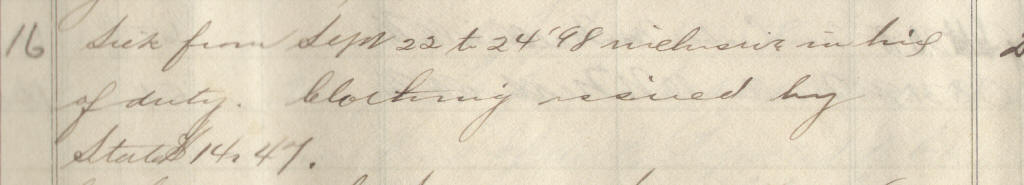 16 Sick from Sept 22 to 24 '98 inclusive in line
of duty. Clothing issued by
State $14.47.